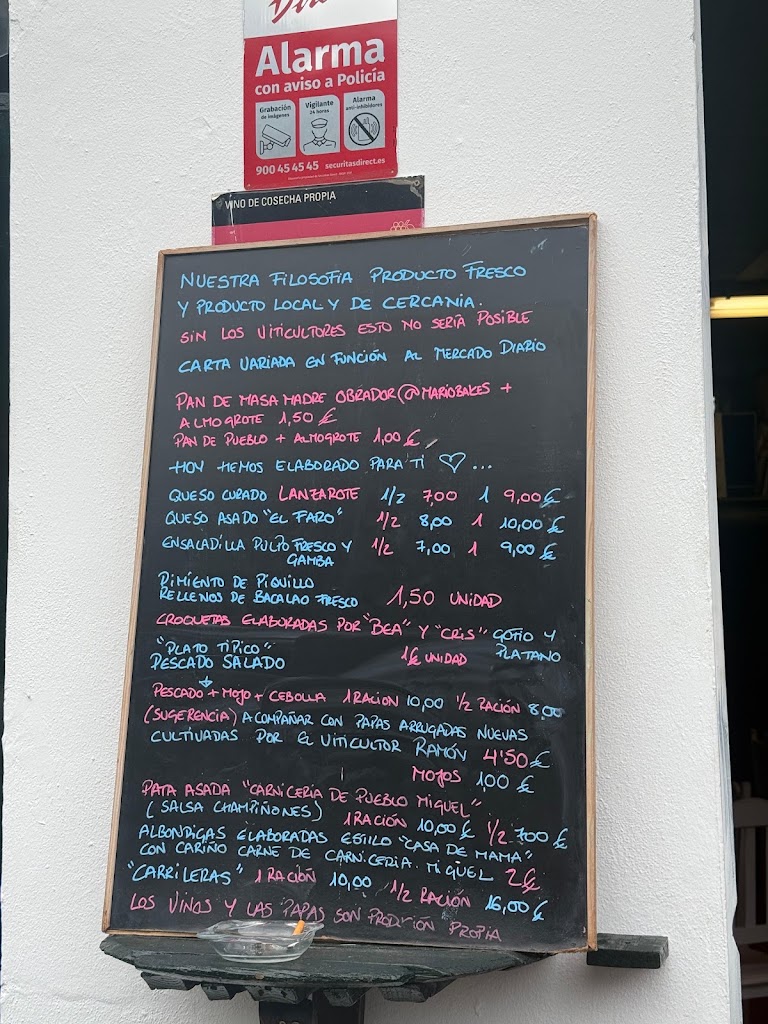 Dire
Alarma
con aviso a Policía
Grabación de imágenes
Vigilante 24 horas
Alarma anti-inhibidores
900 45 45 45 securitasdirect.es
VINO DE COSECHA PROPIA
NUESTRA FILOSOFÍA PRODUCTO FRESCO
Y PRODUCTO LOCAL Y DE CERCANIA.
SIN LOS VITICULTORES ESTO NO SERÍA POSIBLE
CARTA VARIADA EN FUNCIÓN AL MERCADO DIARIO
PAN DE MASA MADRE OBRADOR @MARIOBAKES +
ALMOGROTE 1,50 €
PAN DE PUEBLO + ALMOGROTE 1,00 €
HOY HEMOS ELABORADO PARA TI ♡...
QUESO CURADO LANZAROTE 1/2 7,00 1 9,00 €
QUESO ASADO "EL FARO" 1/2 8,00 1 10,00 €
ENSALADILLA PULPO FRESCO Y 1/2 7,00 1 9,00 €
GAMBA
PIMIENTO DE PIQUILLO
RELLENOS DE BACALAO FRESCO 1,50 UNIDAD
CROQUETAS ELABORADAS POR "BEA" Y "CRIS" GOFIO Y
"PLATO TÍPICO" PLATANO
PESCADO SALADO 1€ UNIDAD
PESCADO + MOJO + CEBOLLA 1 RACION 10,00 1/2 RACIÓN 8,00
(SUGERENCIA) ACOMPAÑAR CON PAPAS ARRUGADAS NUEVAS
CULTIVADAS POR EL VITICULTOR RAMÓN 4'50 €
MOJOS 1,00 €
PATA ASADA "CARNICERÍA DE PUEBLO MIGUEL"
(SALSA CHAMPIÑONES) 1 RACIÓN 10,00 € 1/2 7,00 €
ALBONDIGAS ELABORADAS ESTILO "CASA DE MAMA"
CON CARIÑO CARNE DE CARNICERIA. MIGUEL 2€
"CARRILERAS" 1 RACIÓN 10,00 1/2 RACIÓN 16,00 €
LOS VINOS Y LAS PAPAS SON PRODUCIÓN PROPIA